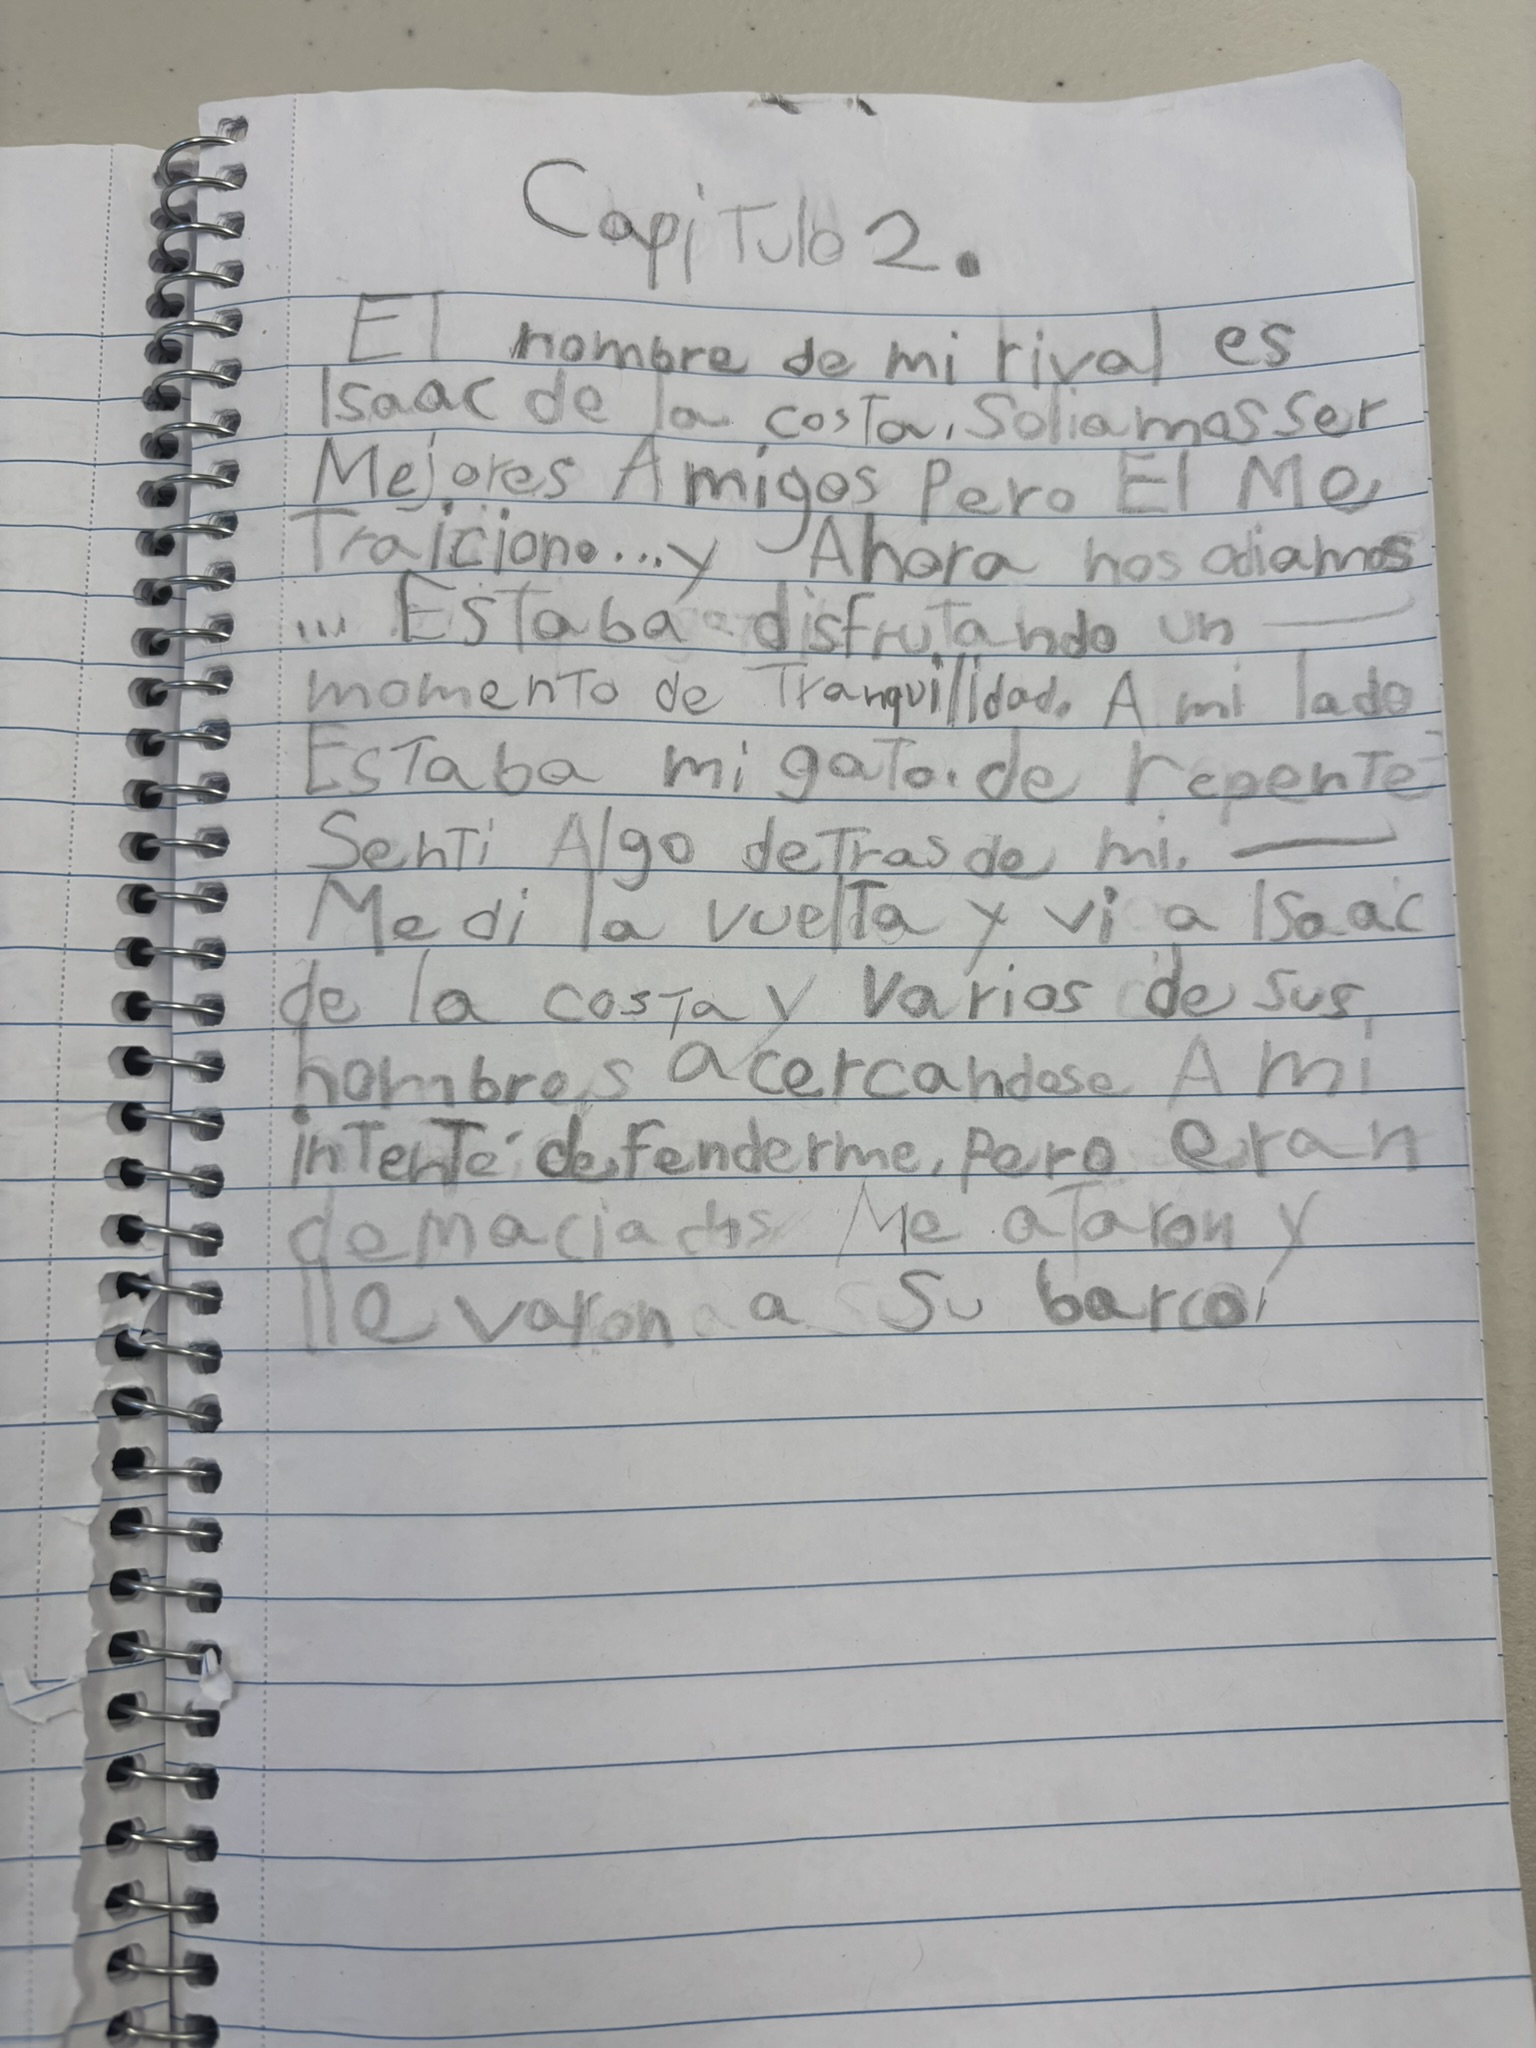 Capitulo 2.
El nombre de mi rival es
Isaac de la costa. Soliamos ser
Mejores Amigos Pero El Me
Traiciono... y Ahora nos odiamos
... Estaba disfrutando un
momento de Tranquilidad. A mi lado
Estaba mi gato. de repente
Senti Algo detras de mi.
Me di la vuelta y vi a Isaac
de la costa y varios de sus
hombres acercandose A mi
intenté defenderme, pero eran
demaciados Me ataron y
llevaron a su barco.